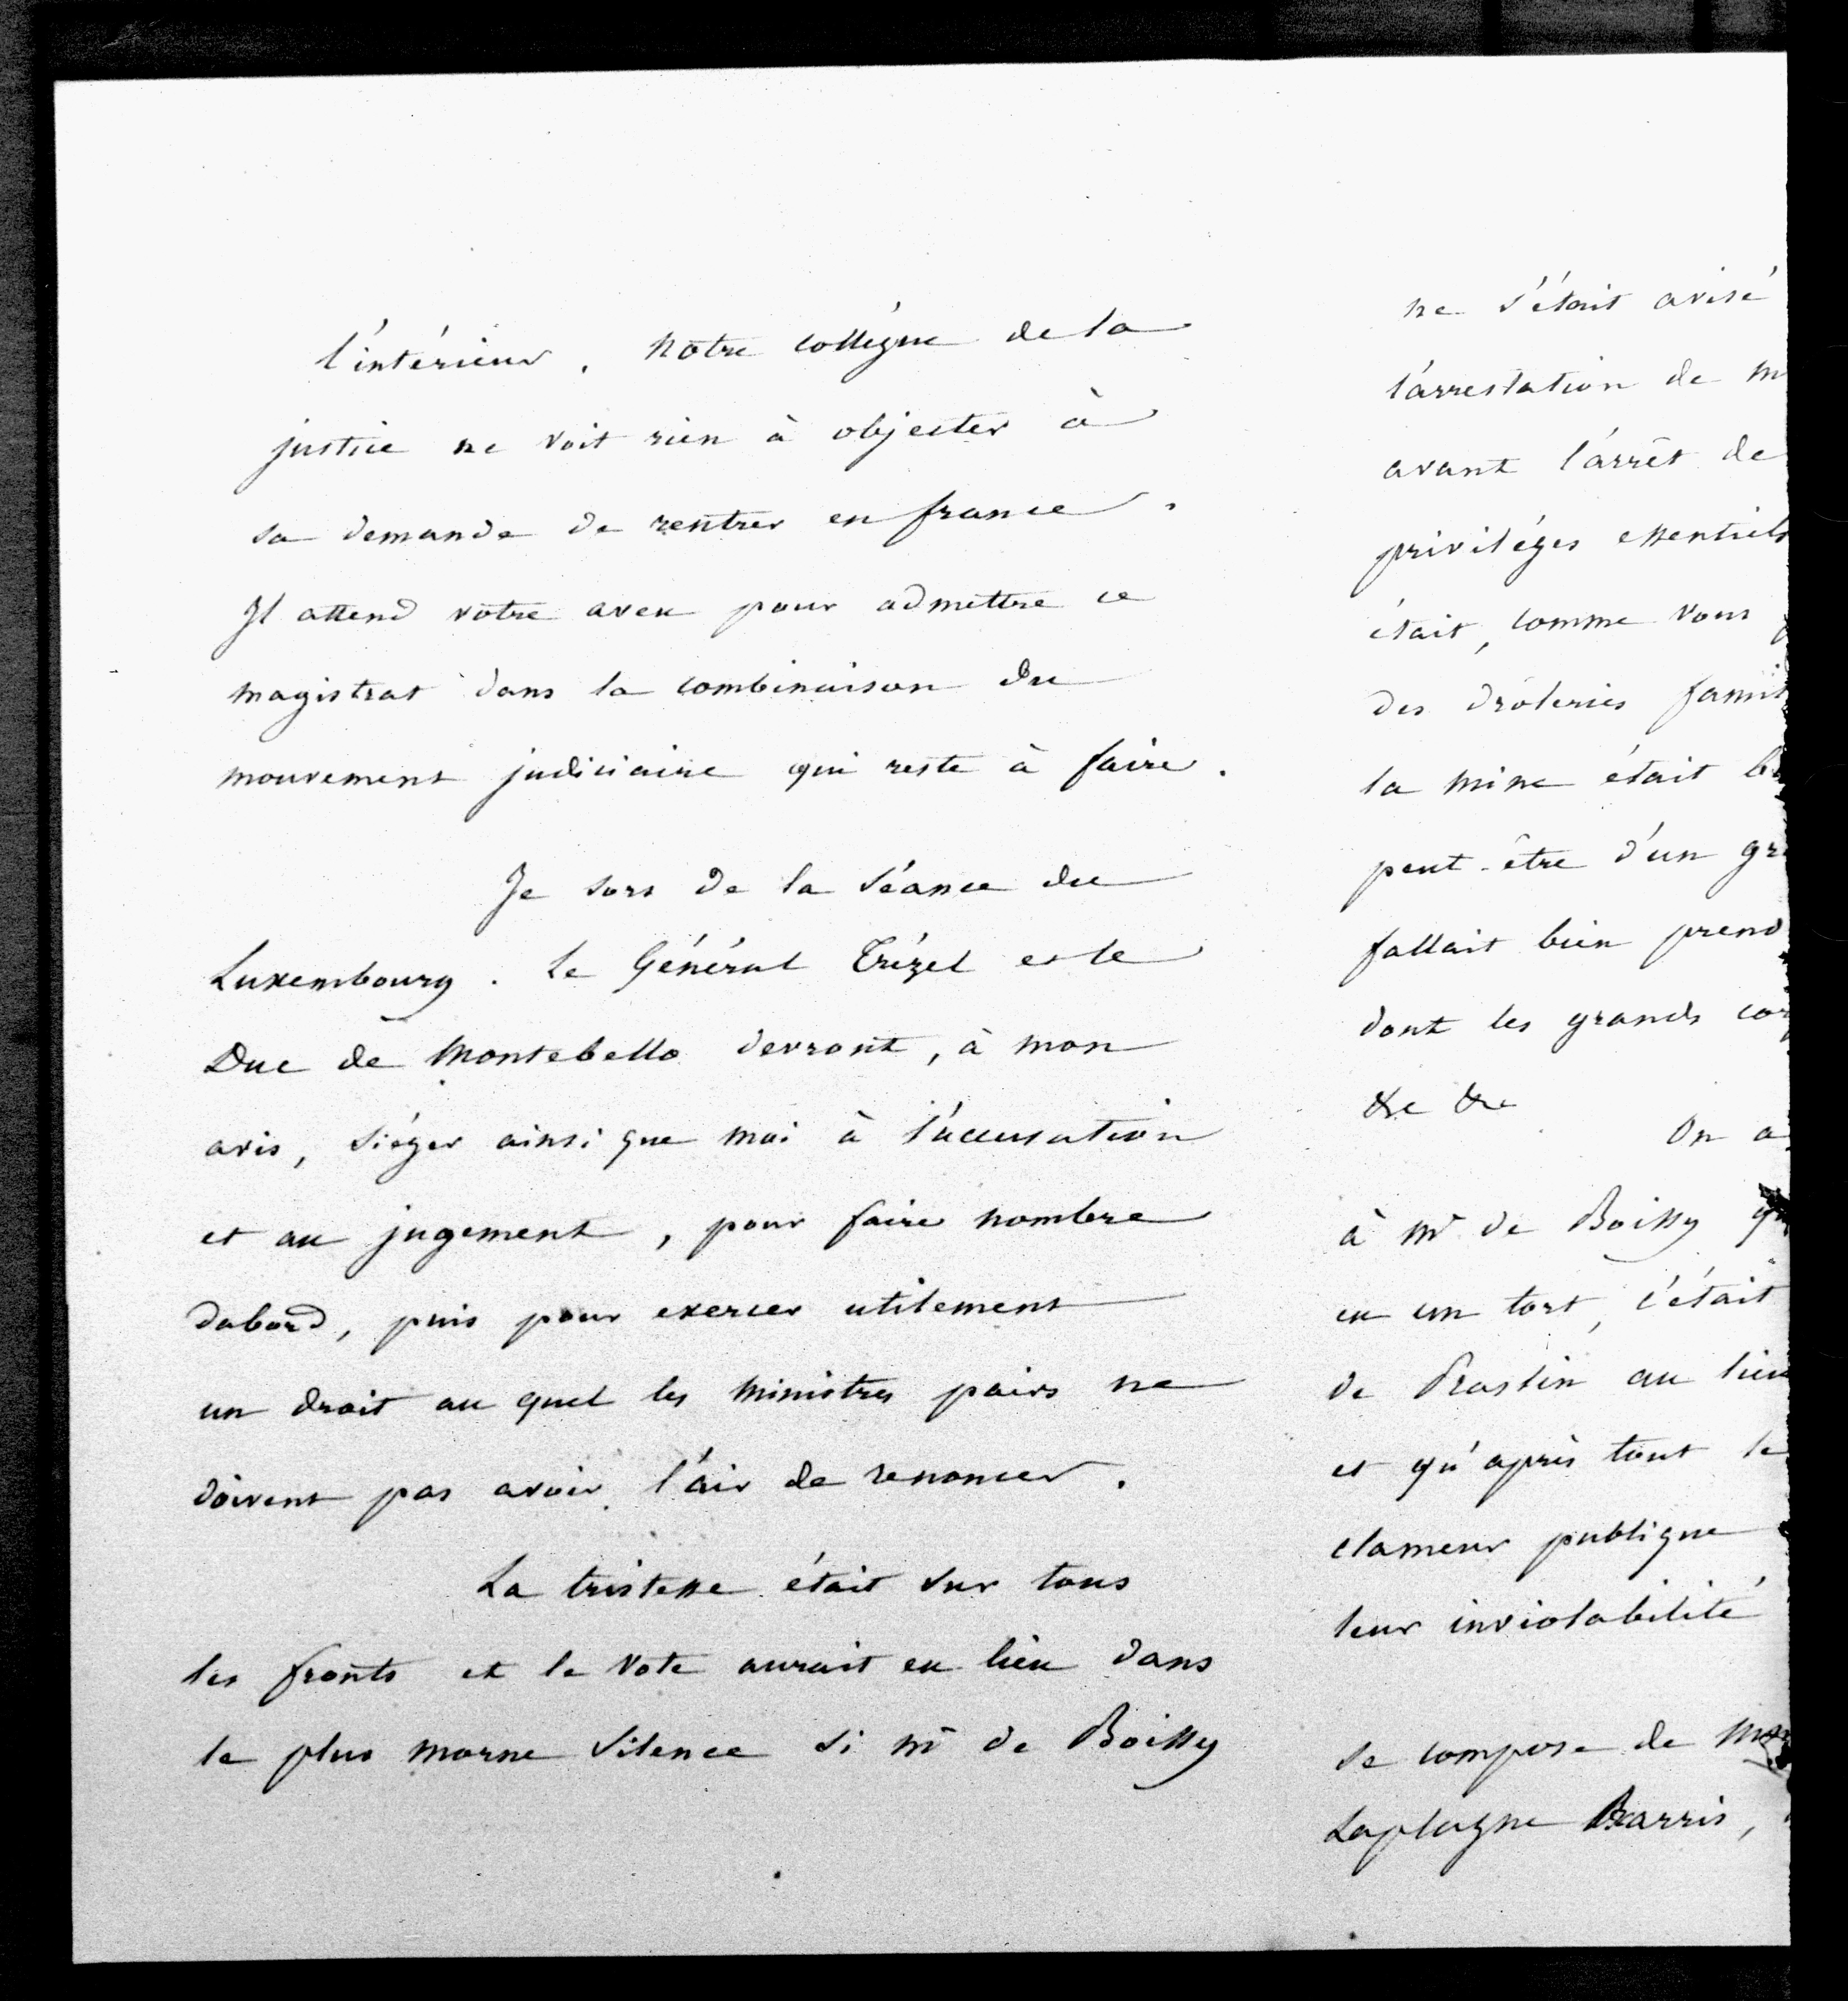 l'intérieur. Notre collégue de la
justice ne voit rien à objecter à
sa demande de rentrer en france.
Il attend votre aveu pour admettre ce
magistrat dans la combinaison du
mouvement judiciaire qui reste à faire.
Je sors de la séance du
Luxembourg. Le Général Trézel et le
Duc de Montebello devront, à mon
avis, siéger ainsi que moi à l'accusation
et au jugement, pour faire nombre
dabord, puis pour exercer utilement
un droit au quel les ministres pairs ne
doivent pas avoir l'air de renoncer.
La tristesse était sur tous
les fronts et le vote aurait eu lieu dans
le plus morne silence si Mr de Boissy
ne s'était avisé
l'arrestation de
avant l'arrêt de
priviléges essentiels
était, comme vous
des drôleries
la mine était
peut-être d'un
fallait bien
dont les grands
&c &c
On a
à Mr de Boissy
eu un tort, c'était
de Praslin au lieu
et qu'après tout le
clameur publique
leur inviolabilité
se compose de
Laplagne Barris,